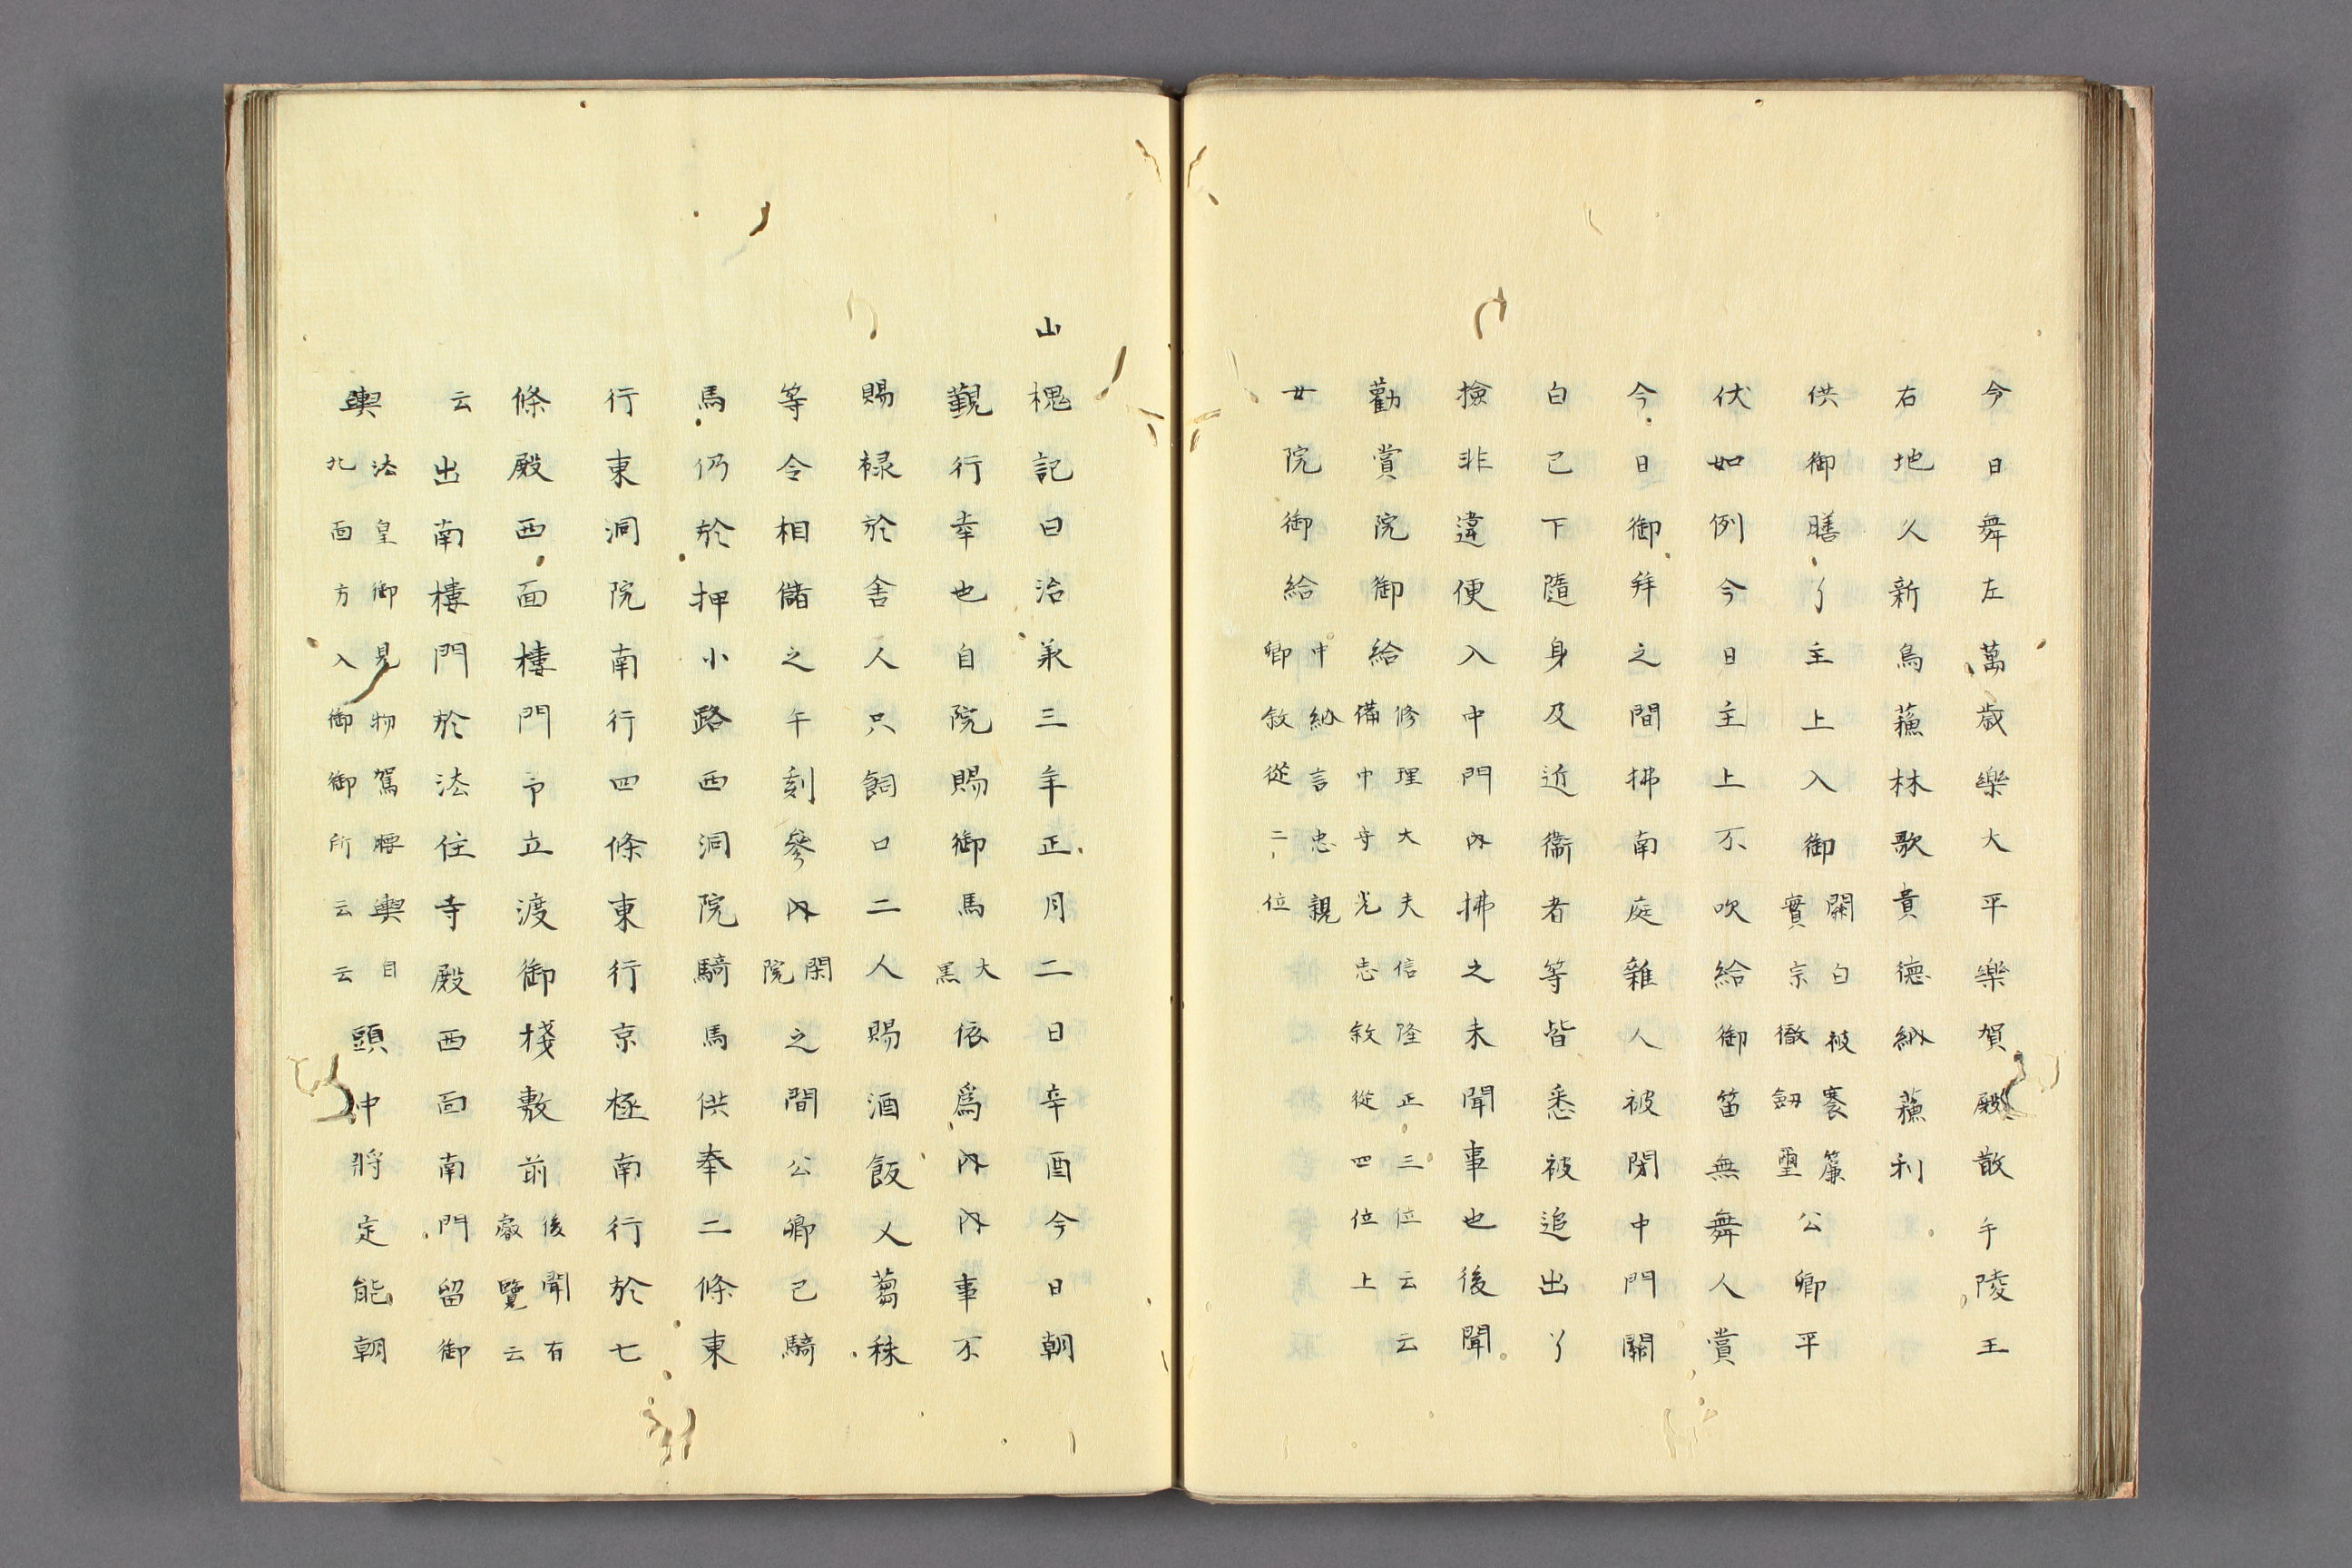 今日舞左萬歳樂大平樂賀殿散手陵王
右地久新鳥蘓林歌貴德納蘓利
供御膳了主上入御關白被褰簾實宗徹劔璽公卿平
伏如例今日主上不吹給御笛無舞人賞
今日御拜之間拂南庭雜人被閇中門關
白已下隨身及近衞者等皆悉被追出了
撿非違使入中門內拂之未聞事也後聞
勸賞院御給修理大夫信隆正三位云云備中守光忠敘從四位上
女院御給中納言忠親卿敘從二位
山槐記曰治承三年正月二日辛酉今日朝
覲行幸也自院賜御馬大黒依爲內內事不
賜禄於舍人只飼口二人賜酒飯乂蒭秣
等令相儲之午刻參內閑院之間公卿已騎
馬仍於押小路西洞院騎馬供奉二條東
行東洞院南行四條東行京極南行於七
條殿西面樓門予立渡御棧敷前後聞有㕢覽云
云出南樓門於法住寺殿西面南門留御
輿法皇御見物駕腰輿自北面方入御御所云云頭中將定能朝